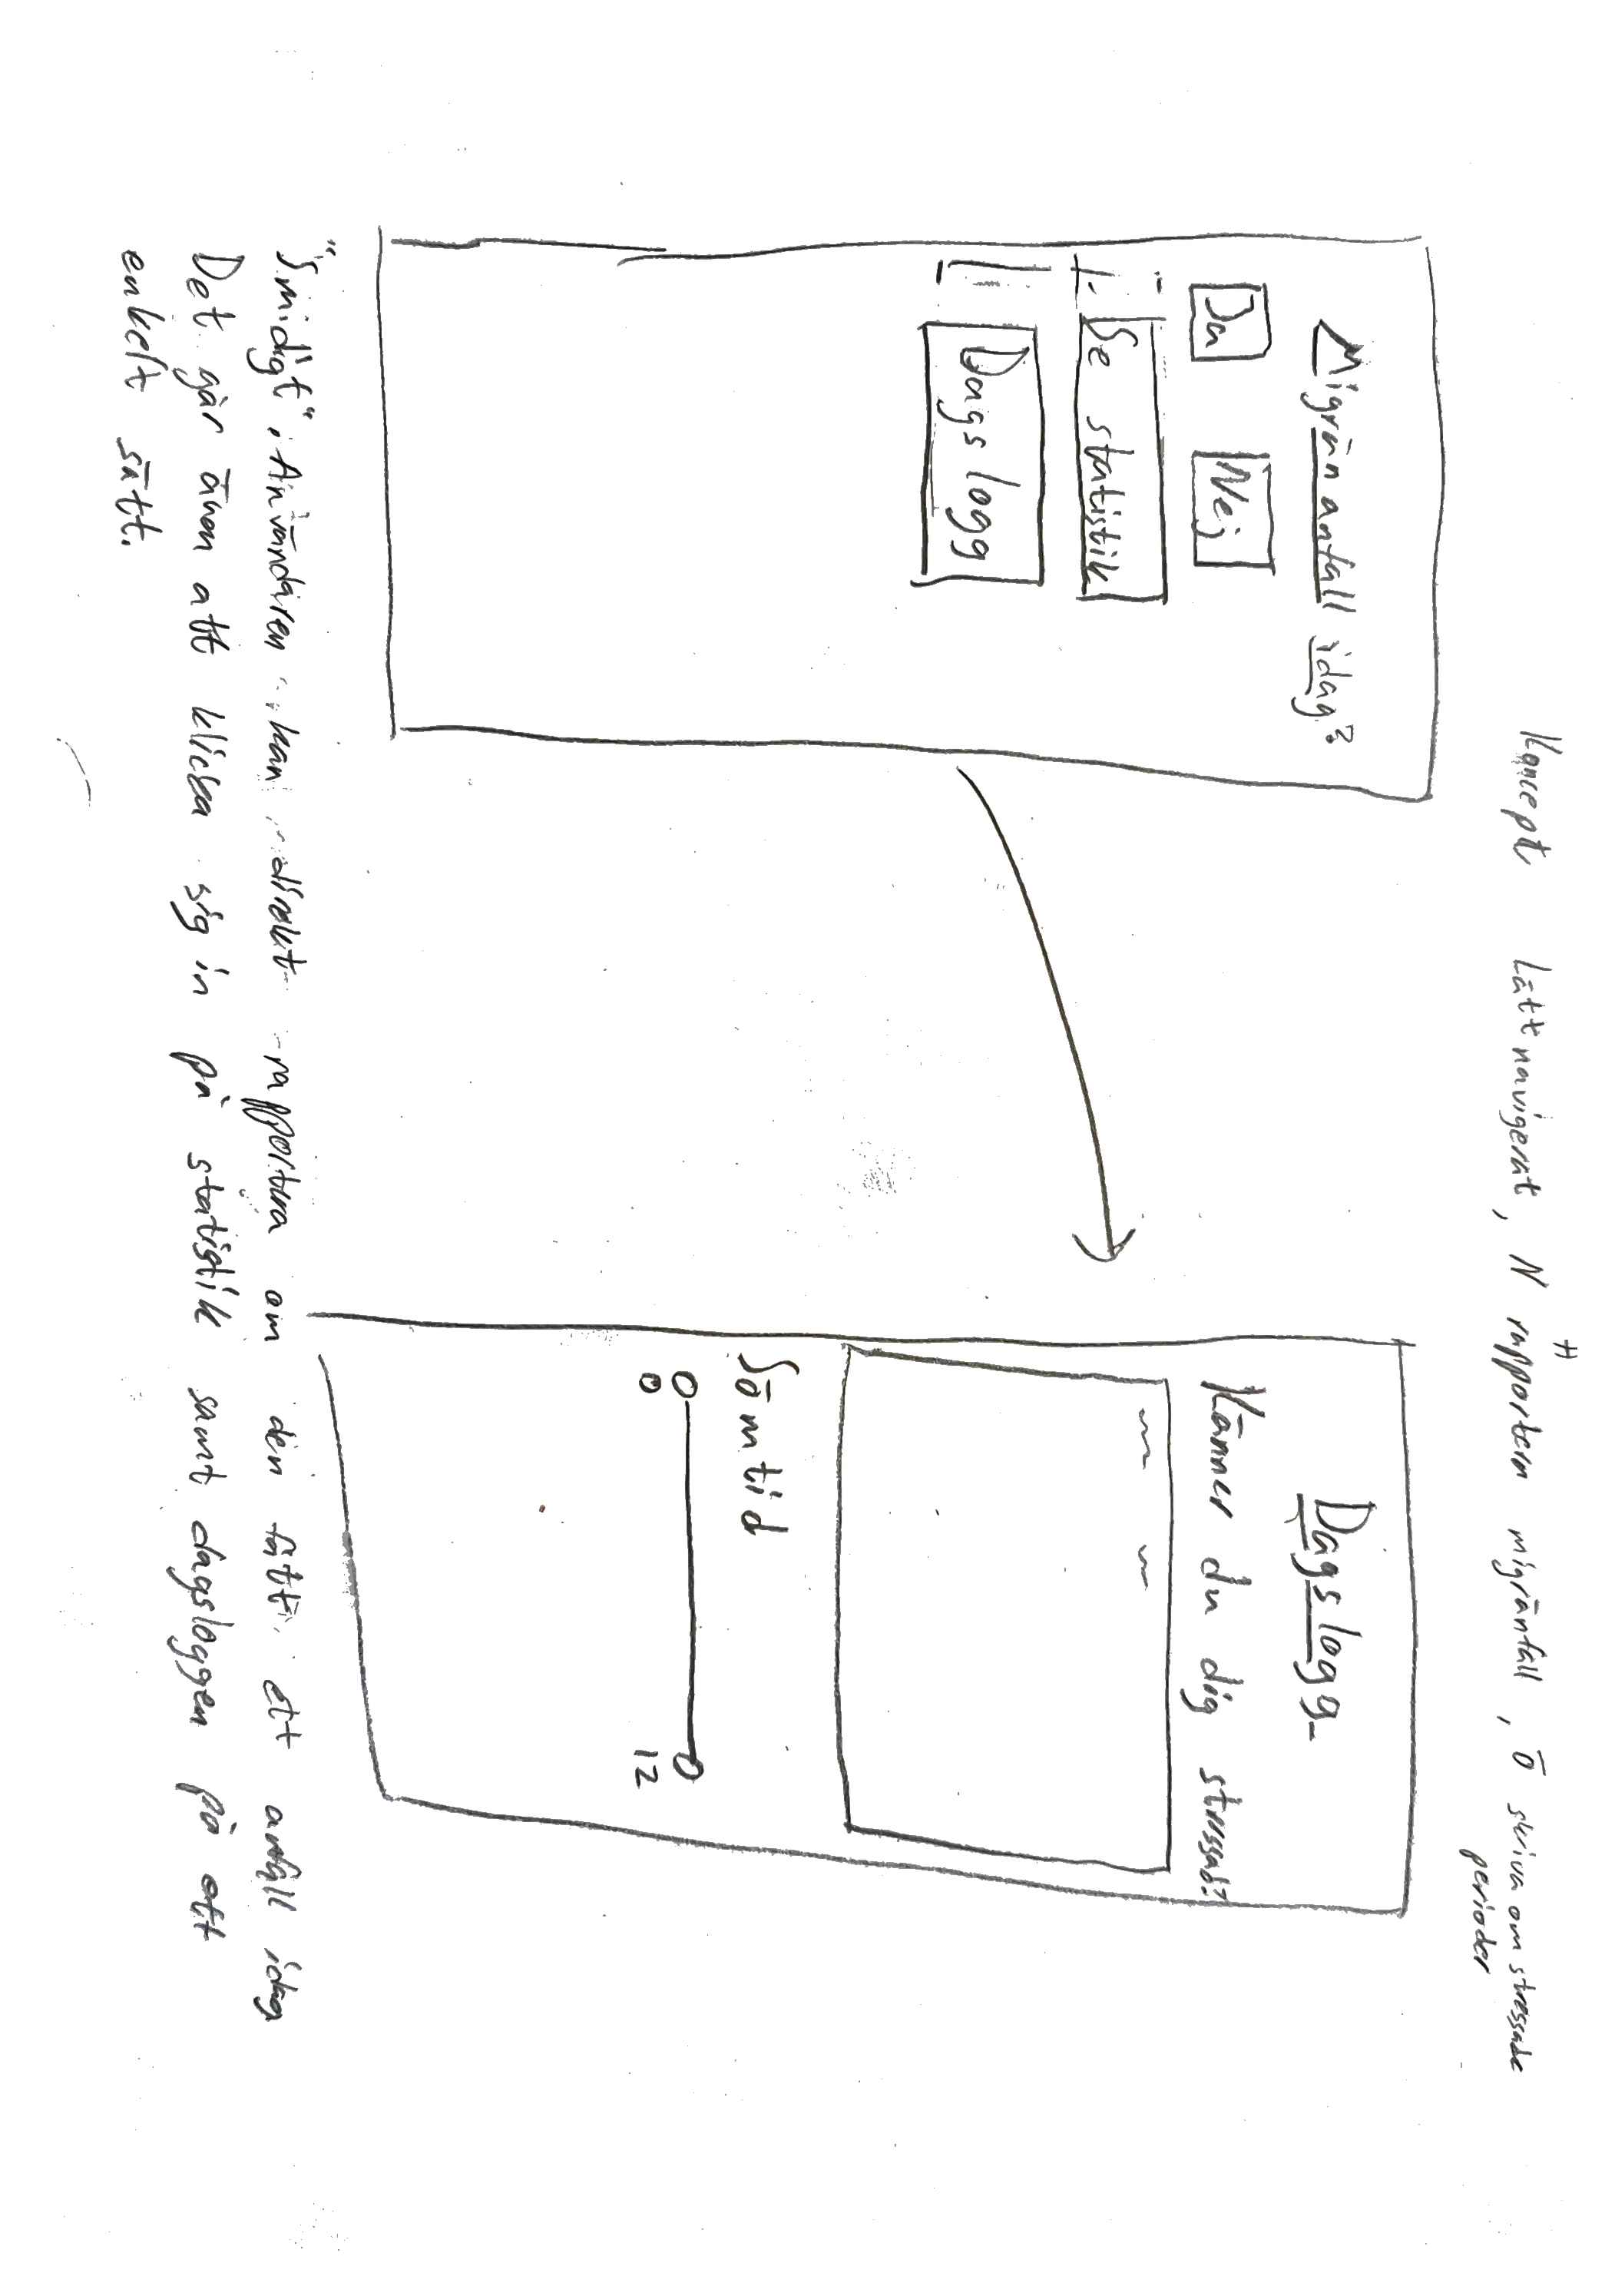 Koncept Lättnavigerat, N rapportera migränfall, Ö skriva om stressade
perioder
Migränanfall idag?
Ja Nej
Se statistik
Dagslogg
Dagslogg
Känner du dig stressad?
Sömtid
0 12
"Smidigt". Användaren kan direkt rapportera om den fått ett anfall idag
Det går även att klicka sig in på statistik samt dagsloggen på ett
enkelt sätt.